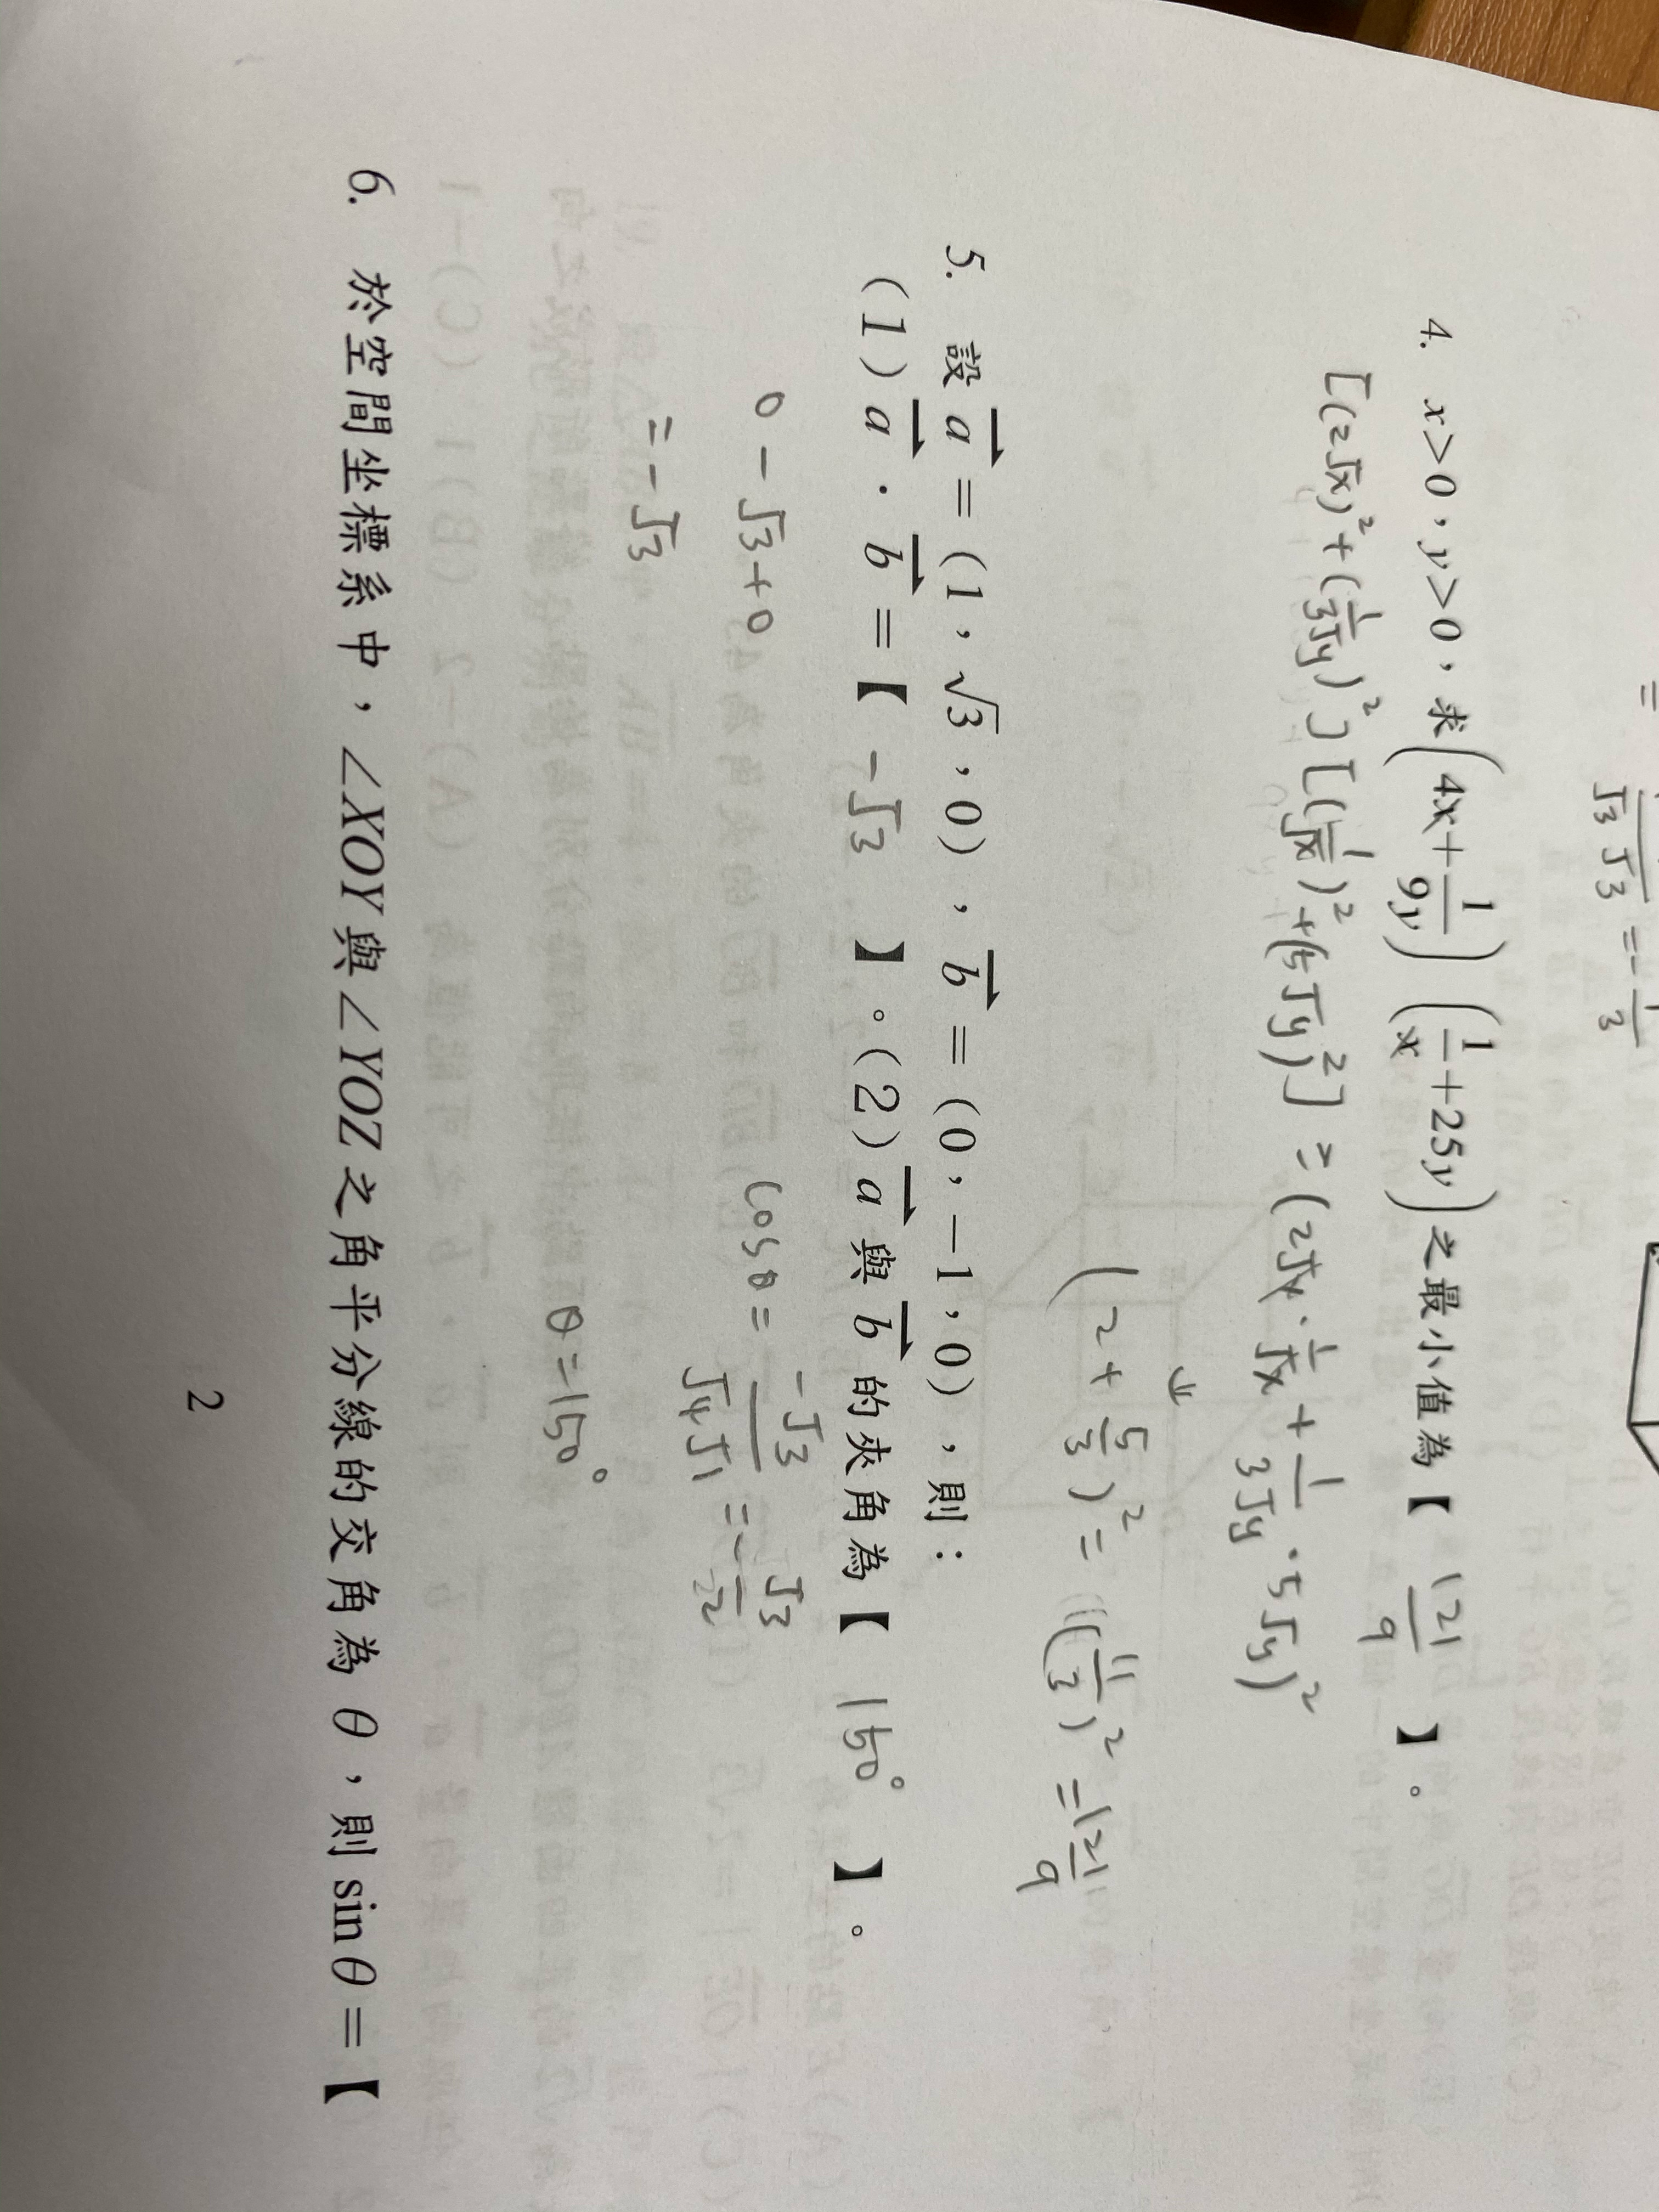 = 
√3 √3 = -1/3
4. x>0，y>0，求(4x+1/9y)(1/x+25y)之最小值為【 121/9 】。
[(2√x)²+(1/3√y)²][(1/√x)²+(5√y)²] ≥ (2√x·1/√x + 1/3√y·5√y)²
↓
(2+5/3)² = (11/3)² = 121/9
5. 設a⃗=(1，√3，0)，b⃗=(0，-1，0)，則：
(1) a⃗·b⃗=【 -√3 】。(2) a⃗與b⃗的夾角為【 150° 】。
0-√3+0
=-√3
cosθ = -√3/√4√1 = -√3/2
θ=150°
6. 於空間坐標系中，∠XOY與∠YOZ之角平分線的交角為θ，則sinθ=【
2